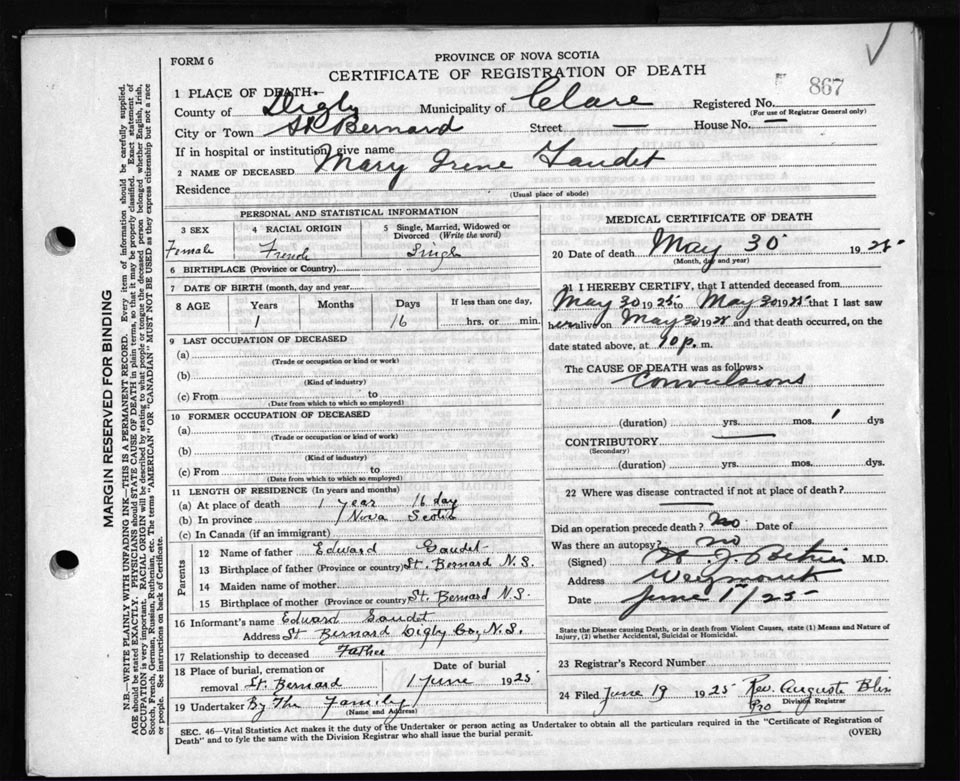 FORM 6
PROVINCE OF NOVA SCOTIA
CERTIFICATE OF REGISTRATION OF DEATH
867
1 PLACE OF DEATH-
County of Digby Municipality of Clare Registered No.
(For use of Registrar General only)
City or Town St Bernard Street — House No. —
If in hospital or institution, give name
2 NAME OF DECEASED Mary Irene Gaudet
Residence
(Usual place of abode)
PERSONAL AND STATISTICAL INFORMATION
3 SEX 4 RACIAL ORIGIN 5 Single, Married, Widowed or Divorced (Write the word)
Female French Single
6 BIRTHPLACE (Province or Country)
7 DATE OF BIRTH (month, day and year)
8 AGE Years Months Days If less than one day,
1 16 hrs. or min.
9 LAST OCCUPATION OF DECEASED
(a)
(Trade or occupation or kind or work)
(b)
(Kind of industry)
(c) From to
(Date from which to which so employed)
10 FORMER OCCUPATION OF DECEASED
(a)
(Trade or occupation or kind of work)
(b)
(Kind of industry)
(c) From to
(Date from which to which so employed)
11 LENGTH OF RESIDENCE (In years and months)
(a) At place of death 1 year 16 day
(b) In province Nova Scotia
(c) In Canada (if an immigrant)
Parents
12 Name of father Edward Gaudet
13 Birthplace of father (Province or country) St. Bernard N.S.
14 Maiden name of mother
15 Birthplace of mother (Province or country) St. Bernard N.S.
16 Informant's name Edward Gaudet
Address St Bernard Digby Coy N.S.
17 Relationship to deceased Father
18 Place of burial, cremation or removal St. Bernard
Date of burial 1 June 1925
19 Undertaker By The Family
(Name and Address)
MEDICAL CERTIFICATE OF DEATH
20 Date of death May 30 1925
(Month, day and year)
21 I HEREBY CERTIFY, that I attended deceased from
May 30 1925 to May 30 1925 that I last saw
her alive on May 30 1925 and that death occurred, on the
date stated above, at 10 p. m.
The CAUSE OF DEATH was as follows:-
Convulsions
(duration) yrs. mos. 1 dys
CONTRIBUTORY
(Secondary)
(duration) yrs. mos. dys.
22 Where was disease contracted if not at place of death?
Did an operation precede death? no Date of
Was there an autopsy? no
(Signed) J. M.D.
Address Weymouth
Date June 1/25
State the Disease causing Death, or in death from Violent Causes, state (1) Means and Nature of Injury, (2) whether Accidental, Suicidal or Homicidal.
23 Registrar's Record Number
24 Filed June 19 1925 Rev. Auguste
Pro Division Registrar
SEC. 46—Vital Statistics Act makes it the duty of the Undertaker or person acting as Undertaker to obtain all the particulars required in the "Certificate of Registration of
Death" and to fyle the same with the Division Registrar who shall issue the burial permit. (OVER)
MARGIN RESERVED FOR BINDING
N.B.—WRITE PLAINLY WITH UNFADING INK—THIS IS A PERMANENT RECORD. Every item of information should be carefully supplied.
AGE should be stated EXACTLY. PHYSICIANS should STATE CAUSE OF DEATH in plain terms, so that it may be properly classified. Exact statement of
OCCUPATION is very important. RACIAL ORIGIN will be described by stating to what people or tongue the deceased person belonged whether English, Irish,
Scotch, French, German, Russian, Ruthenian, etc. The terms "AMERICAN" OR "CANADIAN" MUST NOT BE USED as they express citizenship but not a race
or people. See instructions on back of Certificate.